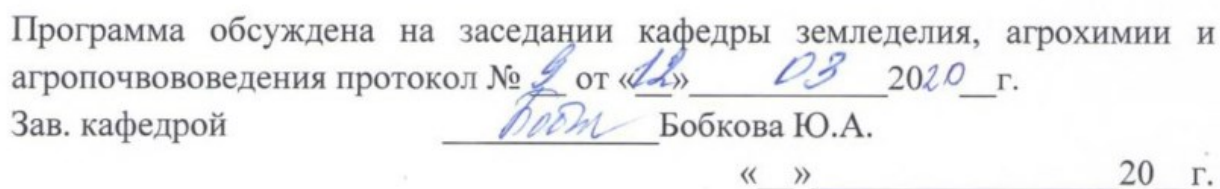 Программа обсуждена на заседании кафедры земледелия, агрохимии и
агропочвововедения протокол № 9 от «12» 03 2020 г.
Зав. кафедрой Бобкова Ю.А.
« » 20 г.